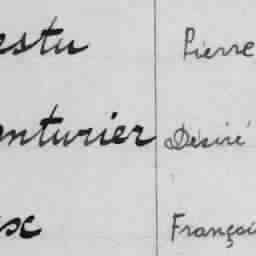 estu Pierre
enturier Désiré
sc Françoi